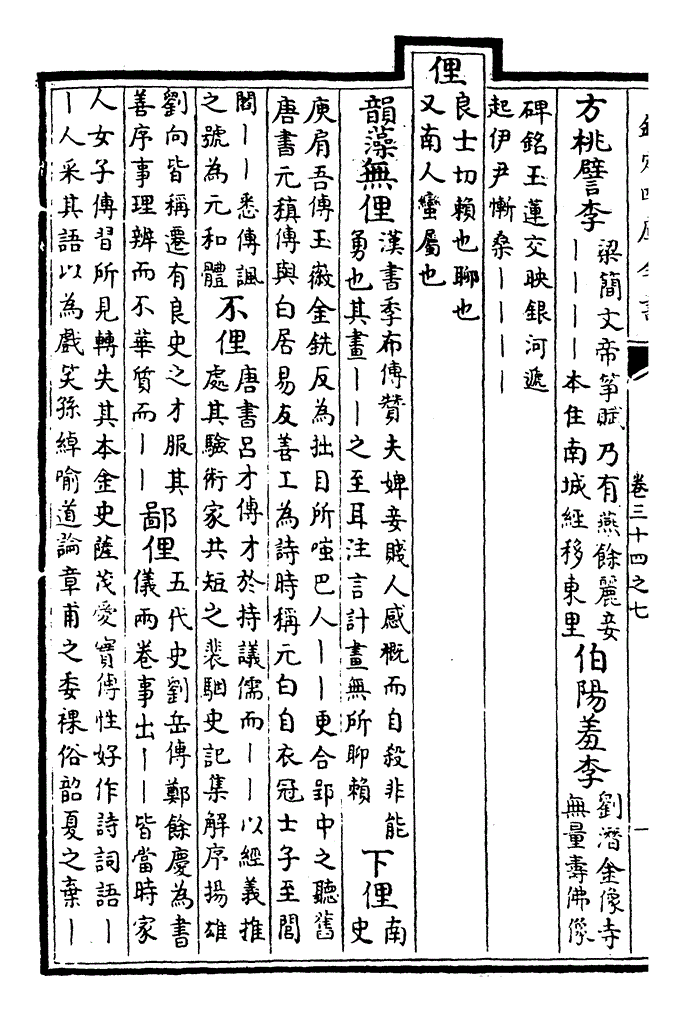 欽定四庫全書
卷三十四之七
一
方桃譬李
梁簡文帝箏賦乃有燕餘麗妾
丨丨丨丨本住南城經移東里
伯陽羞李
劉潛金像寺
無量壽佛像
碑銘玉蓮交映銀河遞
起伊尹慚桑丨丨丨丨
俚
良士切賴也聊也
又南人蠻屬也
韻藻無俚
漢書季布傳贊夫婢妾賤人感概而自殺非能
勇也其畫丨丨之至耳注言計畫無所聊賴
下俚
南
史
庾肩吾傳玉徽金銑反為拙目所嗤巴人丨丨更合郢中之聽舊
唐書元稹傳與白居易友善工為詩時稱元白自衣冠士子至閭
閻丨丨悉傳諷
之號為元和體
不俚
唐書呂才傳才於持議儒而丨丨以經義推
處其驗術家共短之裴駰史記集解序揚雄
劉向皆稱遷有良史之才服其
善序事理辨而不華質而丨丨
鄙俚
五代史劉岳傳鄭餘慶為書
儀兩卷事出丨丨皆當時家
人女子傳習所見轉失其本金史薩茂愛實傳性好作詩詞語丨
丨人采其語以為戲笑孫綽喻道論章甫之委裸俗韶夏之棄丨